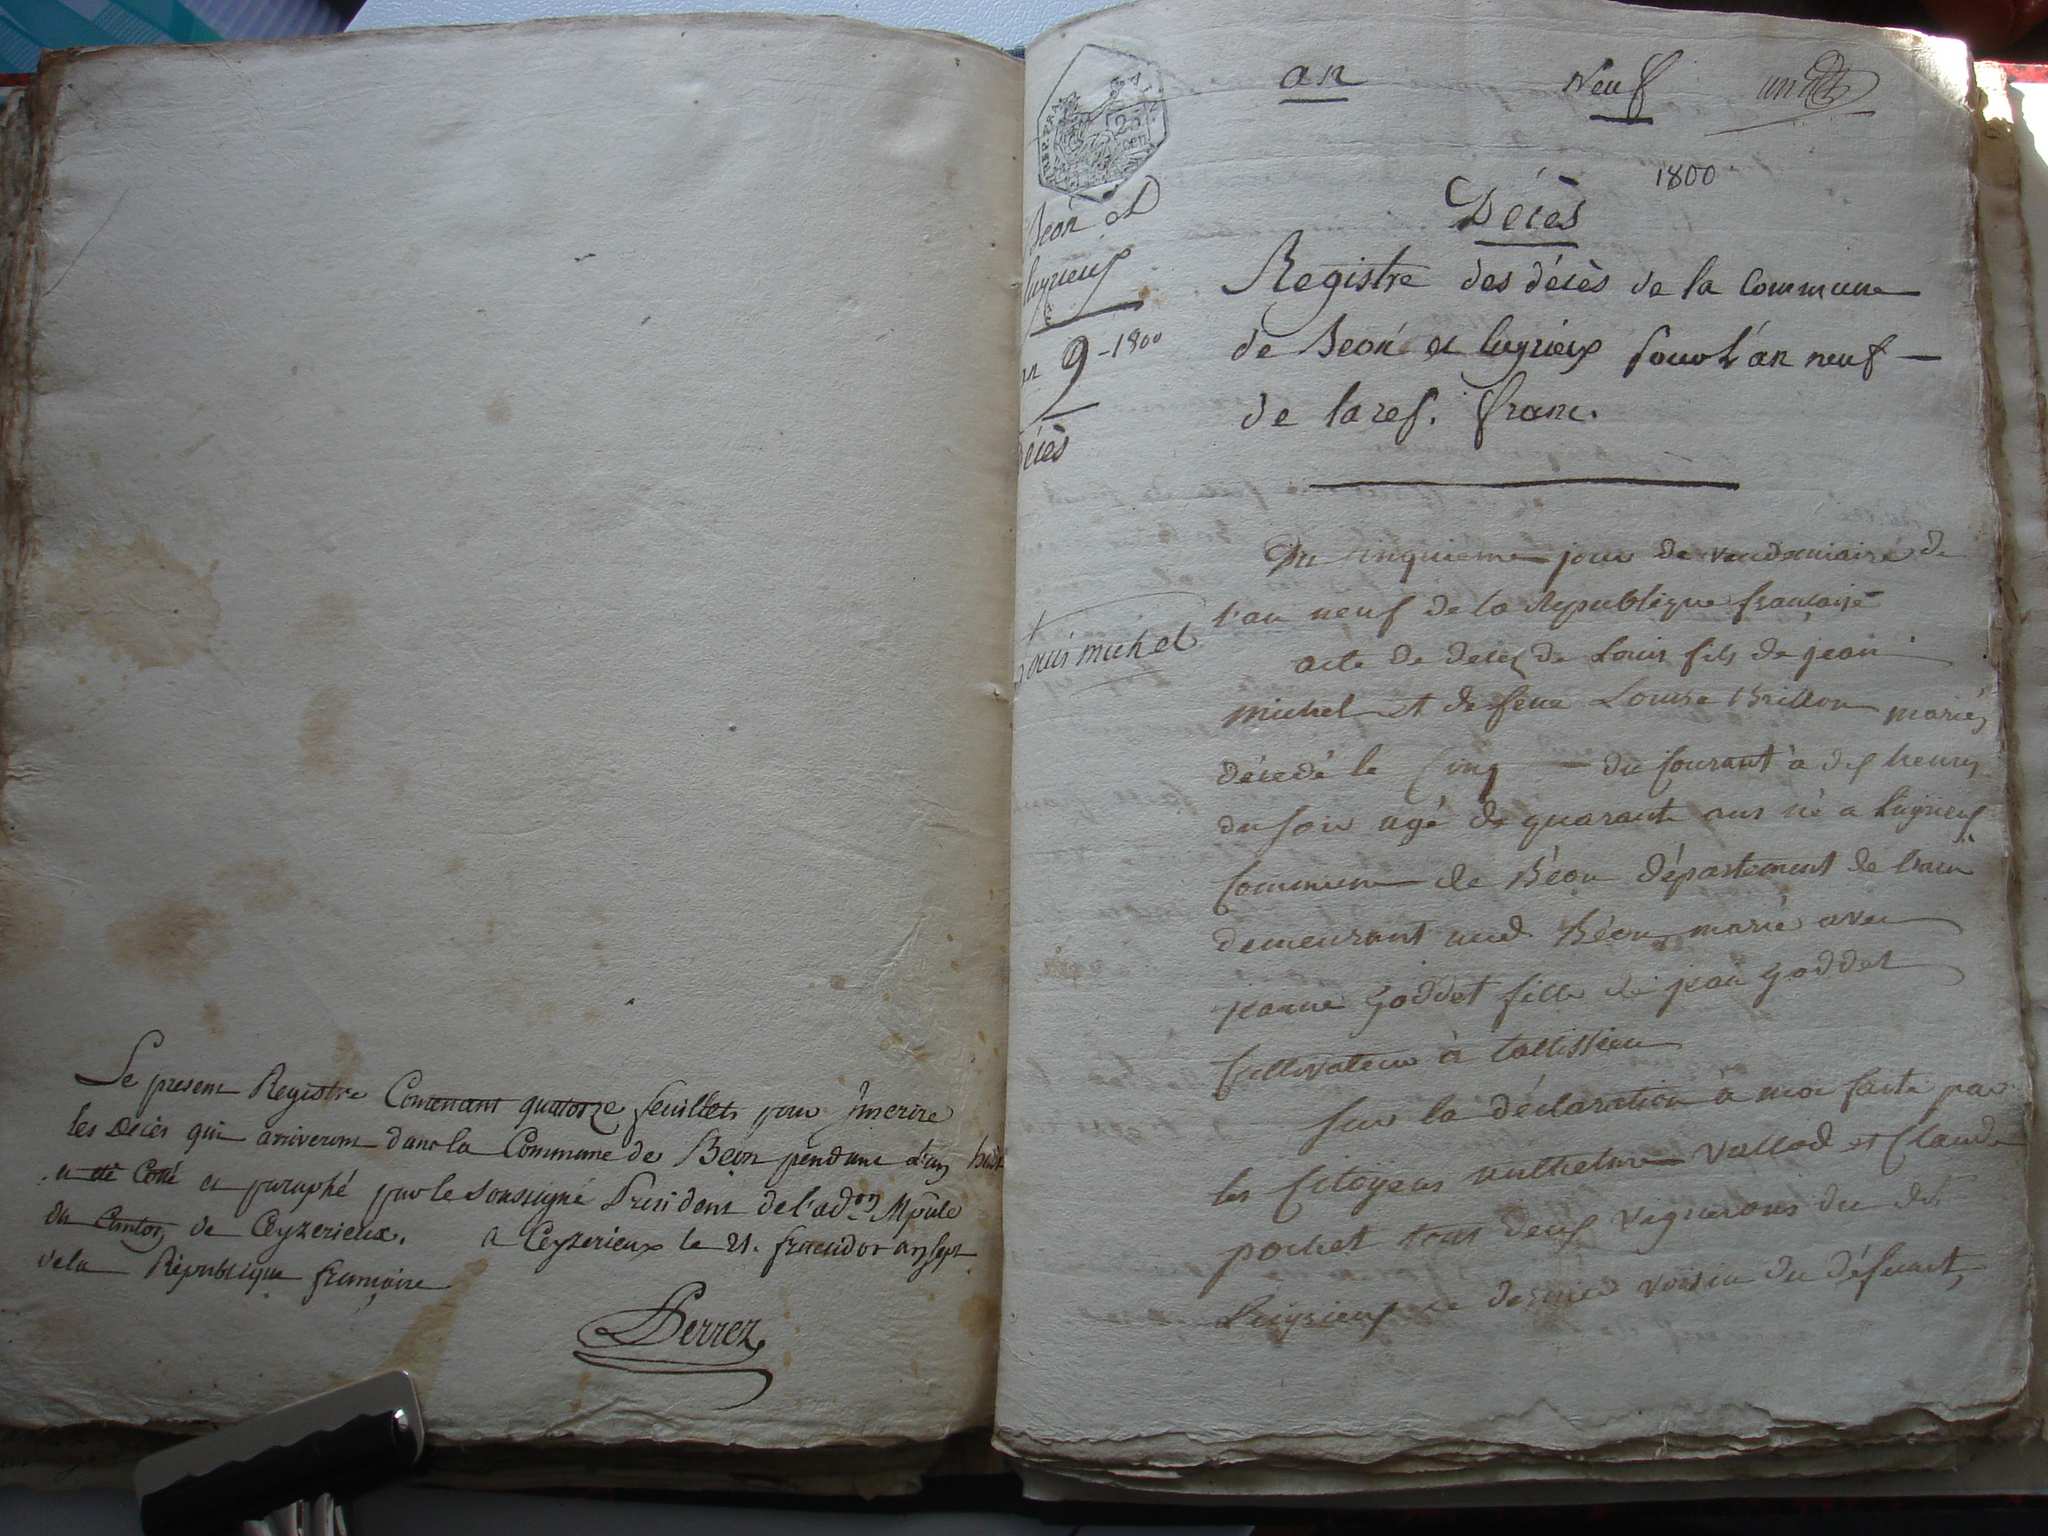 Le present Registre Contenant quatorze feuillets pour y inscrire
les Décès qui arriveront dans la Commune de Beon pendant l'an huit
a été Cotté et paraphé par le soussigné President de l'ad.on Mpale
du Canton de Ceyzerieux. a Ceyzerieux le 21. fructidor an sept
de la République française
Perret
25
cen
Beon et
luyrieux
an 9 - 1800
Décès
Louis michel
an Neuf un
1800
Décès
Registre des décès de la Commune
de Beon et luyrieux pour l'an neuf
de la rep. franc.
Du cinquieme jour de vendemiaire de
l'an neuf de la Republique française
acte de deces de Louis fils de jean
michel et de feue Louise Brillon mariés
décedé le Cinq du Courant à dix heures
du soir agé de quarante ans né a Luyrieux
Commune de Béon département de l'ain
demeurant aud Béon, marié avec
jeanne Goddet fille de jean Goddet
Cultivateur à talissieu
sur la déclaration à moi faite par
les Citoyens anthelme Vallod et Claude
pochet tous deux vignerons du dit
Luyrieux le dernier voisin du défunt,